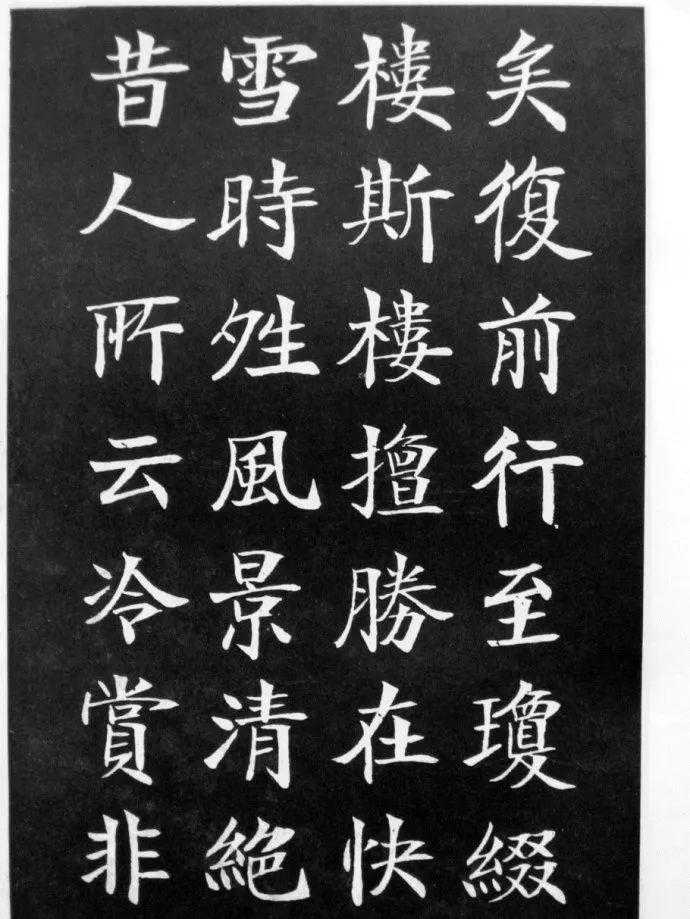 矣復前行至瓊綴
樓斯樓擅勝在快
雪時夝風景清絶
昔人所云冷賞非